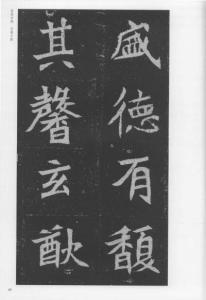 盛德有馥
其馨玄猷